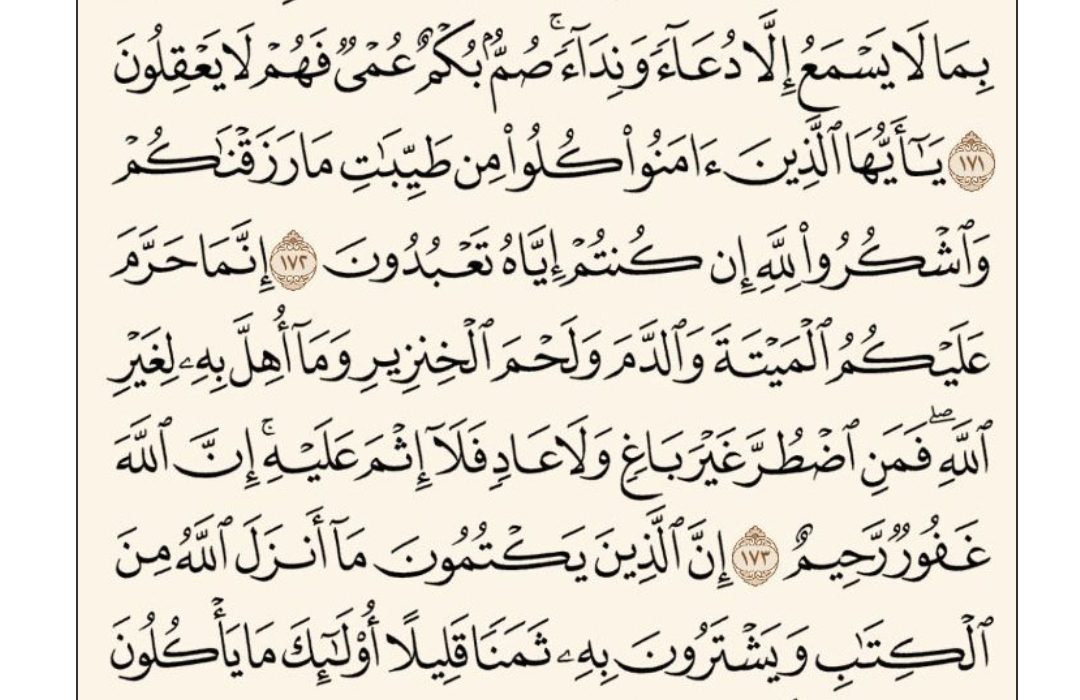 بِمَا لَا يَسْمَعُ إِلَّا دُعَآءً وَنِدَآءً ۚ صُمُّۢ بُكْمٌ عُمْىٌ فَهُمْ لَا يَعْقِلُونَ
١٧١ يَـٰٓأَيُّهَا ٱلَّذِينَ ءَامَنُوا۟ كُلُوا۟ مِن طَيِّبَـٰتِ مَا رَزَقْنَـٰكُمْ
وَٱشْكُرُوا۟ لِلَّهِ إِن كُنتُمْ إِيَّاهُ تَعْبُدُونَ ١٧٢ إِنَّمَا حَرَّمَ
عَلَيْكُمُ ٱلْمَيْتَةَ وَٱلدَّمَ وَلَحْمَ ٱلْخِنزِيرِ وَمَآ أُهِلَّ بِهِۦ لِغَيْرِ
ٱللَّهِ ۖ فَمَنِ ٱضْطُرَّ غَيْرَ بَاغٍ وَلَا عَادٍ فَلَآ إِثْمَ عَلَيْهِ ۚ إِنَّ ٱللَّهَ
غَفُورٌ رَّحِيمٌ ١٧٣ إِنَّ ٱلَّذِينَ يَكْتُمُونَ مَآ أَنزَلَ ٱللَّهُ مِنَ
ٱلْكِتَـٰبِ وَيَشْتَرُونَ بِهِۦ ثَمَنًا قَلِيلًا أُو۟لَـٰٓئِكَ مَا يَأْكُلُونَ